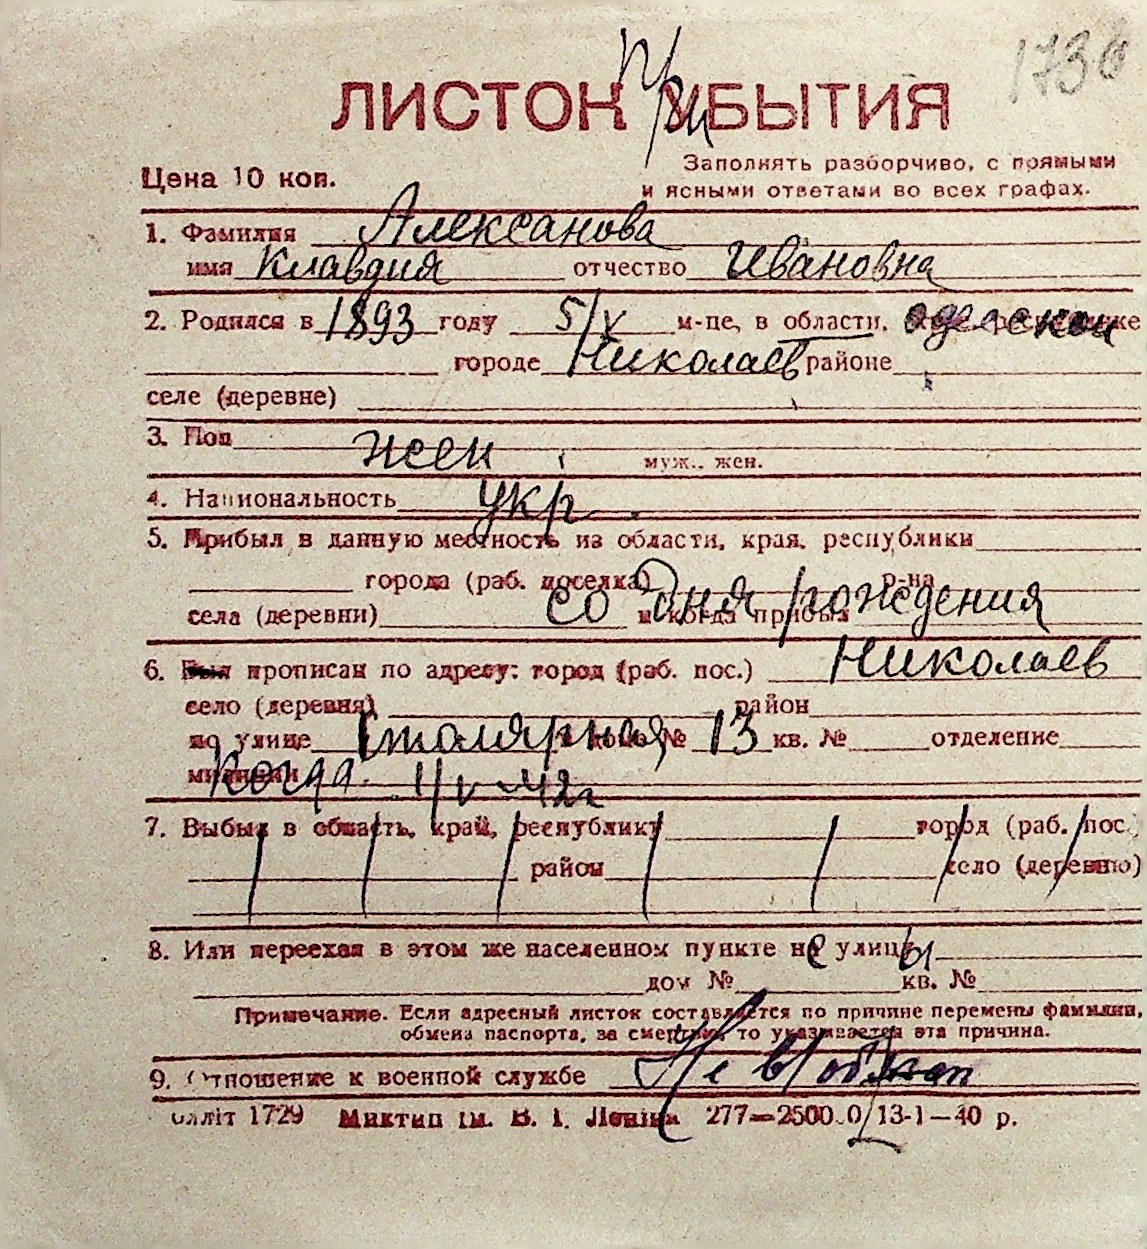 1736
ЛИСТОК ПРИБЫТИЯ
Цена 10 коп.
Заполнять разборчиво, с прямыми
и ясными ответами во всех графах.
1. Фамилия Алексанова
имя Клавдия отчество Ивановна
2. Родился в 1893 году 5/V м-це, в области, одесской
городе Николаев районе
селе (деревне)
3. Пол жен
муж., жен.
4. Национальность укр.
5. Прибыл в данную местность из области, края, республики
города (раб. поселка) р-на
села (деревни) со дня рождения и когда прибыл
6. Был прописан по адресу: город (раб. пос.) Николаев
село (деревня) район
по улице Столярная дом № 13 кв. № отделение
милиции Когда 1/V-42г
7. Выбыл в область, край, республику город (раб. пос.)
район село (деревню)
8. Или переехал в этом же населенном пункте с улицы
дом № кв. №
Примечание. Если адресный листок составляется по причине перемены фамилии,
обмена паспорта, за смертью, то указывается эта причина.
9. Отношение к военной службе Не в/обязан
Миктип ім. В. І. Леніна 277—2500.0 13-1—40 р.